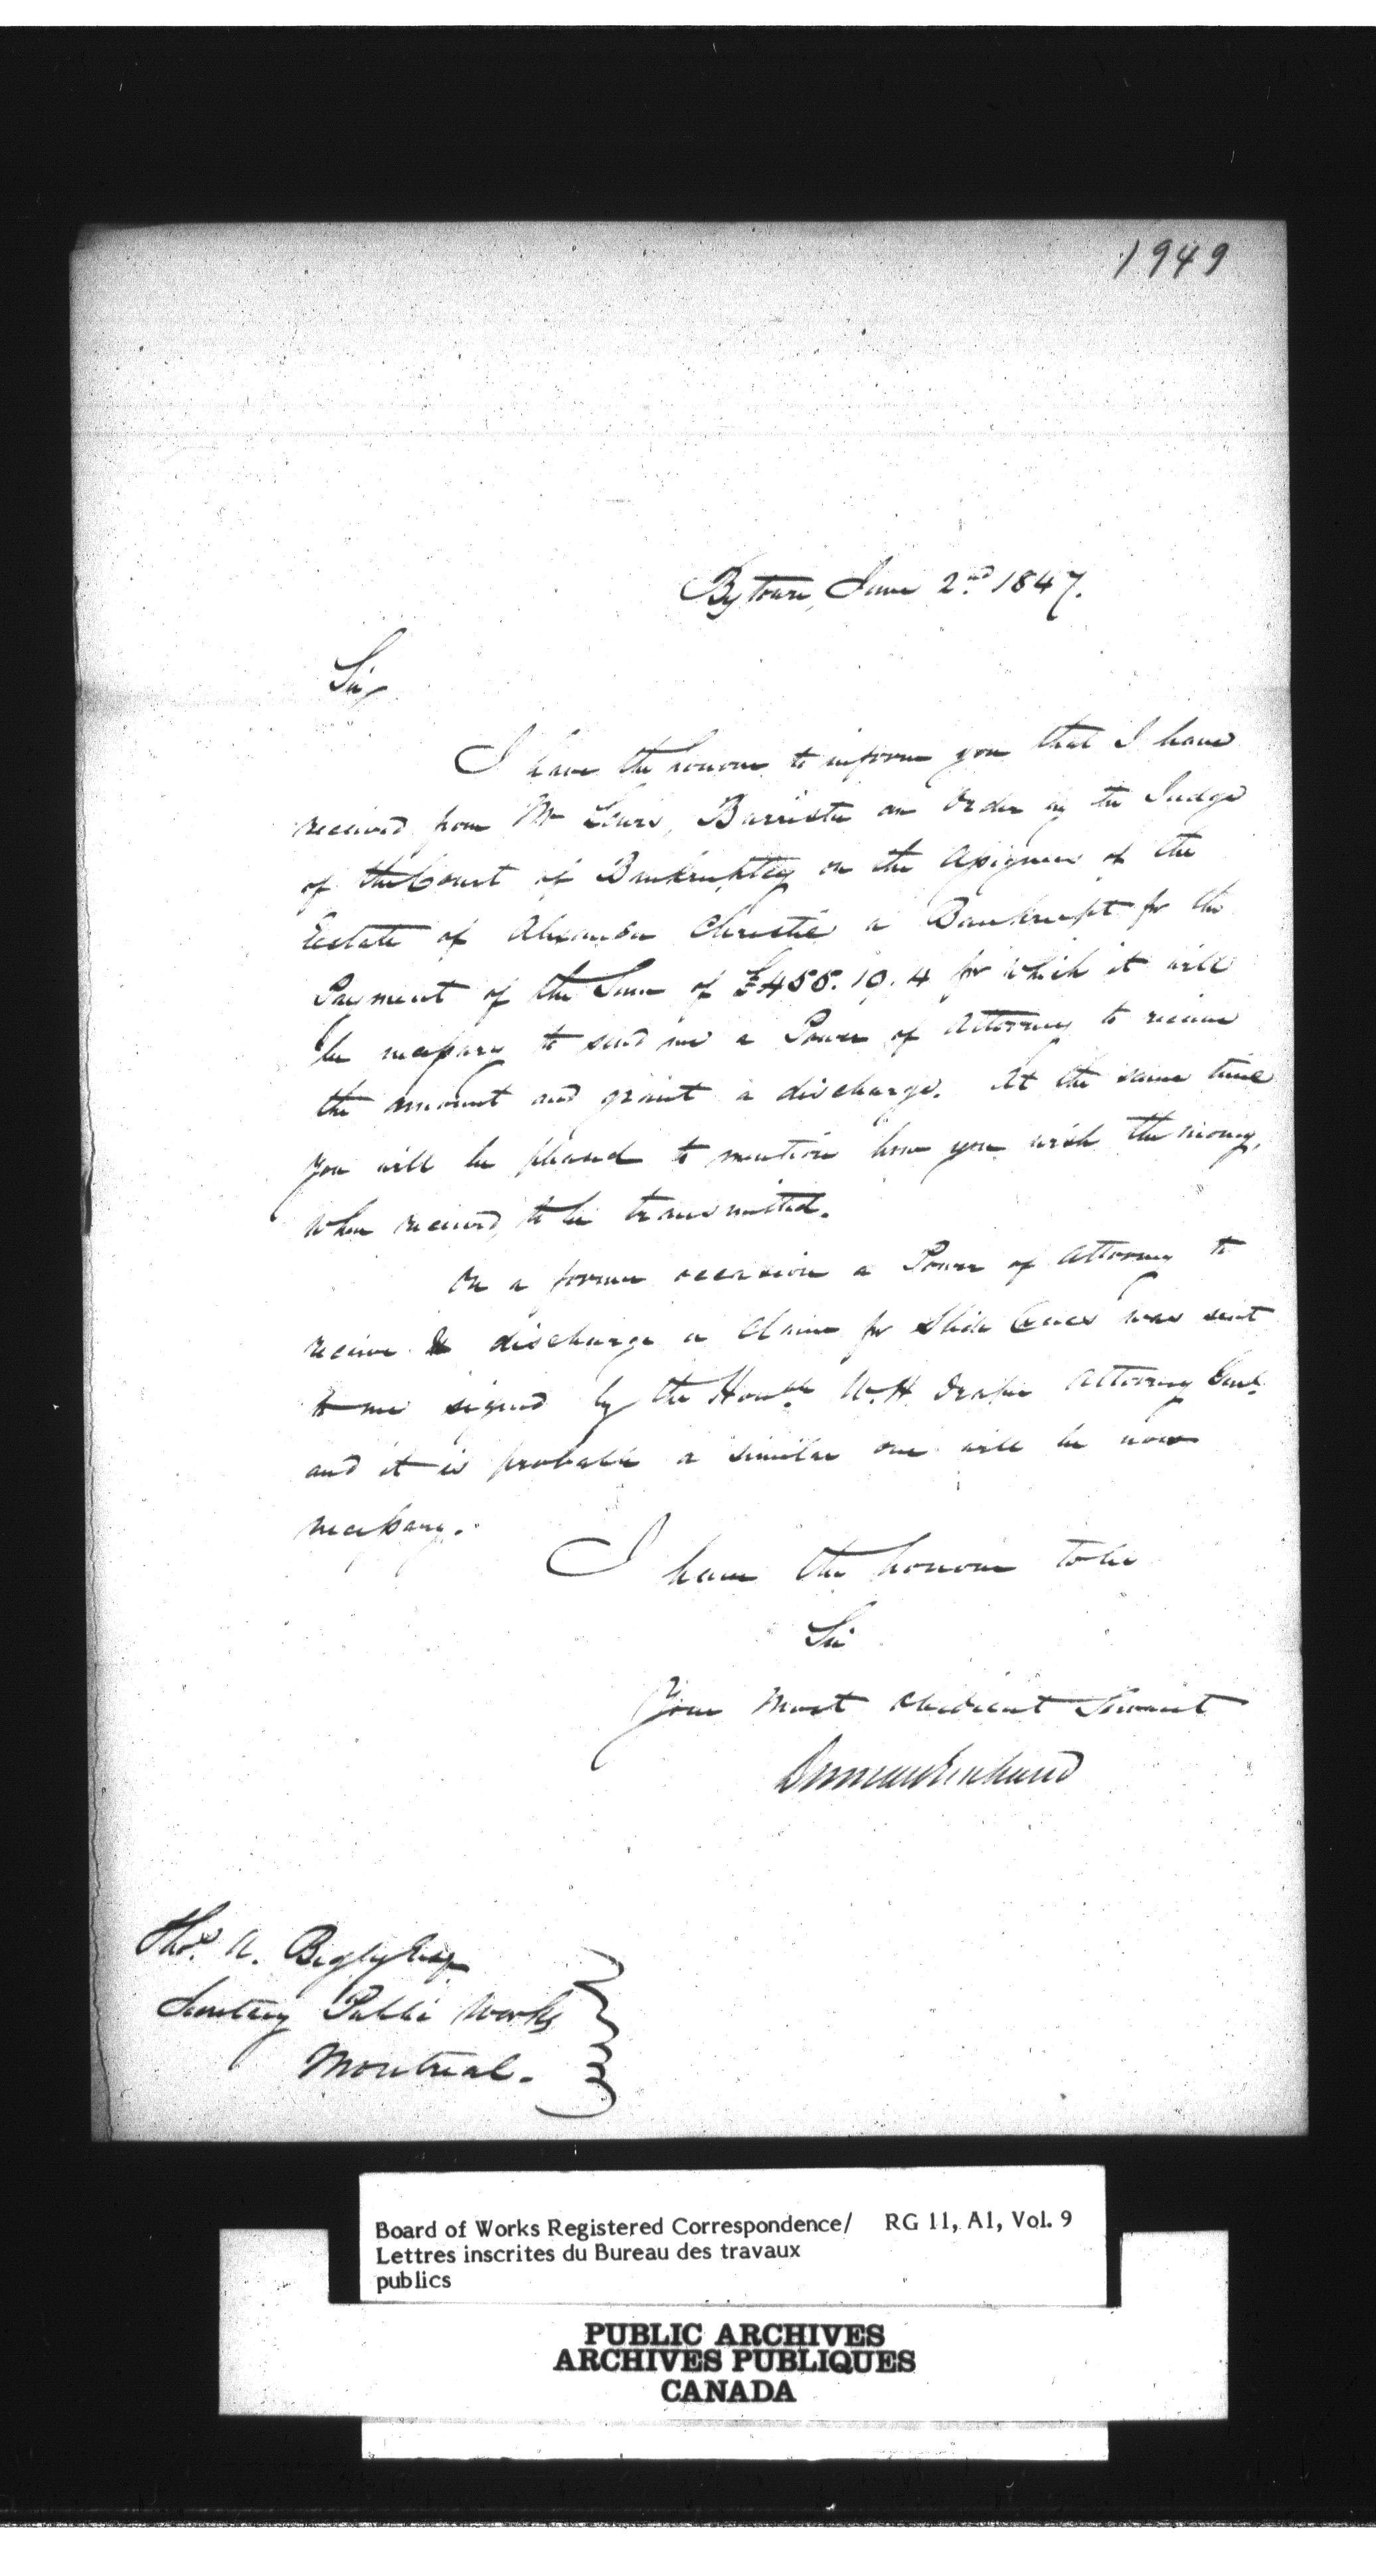 1949
Bytown, June 2nd 1847.
Sir,
I have the honour to inform you that I have
received from Mr Lewis, Barrister an Order of the Judge
of the Court of Bankruptcy on the Assignee of the
Estate of Alexander Christie a Bankrupt for the
Payment of the Sum of £455.10.4 for which it will
be necessary to send me a Power of Attorney to receive
the amount and grant a discharge. At the same time
you will be pleased to mention how you wish the money,
when received, to be transmitted.
On a former occasion a Power of Attorney to
receive & discharge a claim for Slide dues was sent
to me signed by the Honble W. H. Draper Attorney Genl.
and it is probable a similar one will be now
necessary.
I have the honour to be
Sir
Your most obedient Servant
Thos. A. Begly Esqr
Secretary Public Works
Montreal.
Board of Works Registered Correspondence/ RG 11, A1, Vol. 9
Lettres inscrites du Bureau des travaux
publics
PUBLIC ARCHIVES
ARCHIVES PUBLIQUES
CANADA